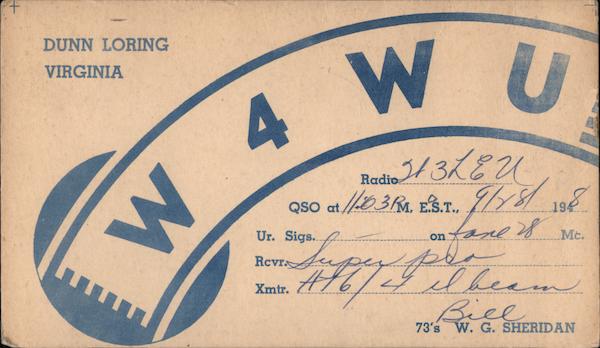 DUNN LORING
VIRGINIA
W 4 W U
Radio W3LEU
QSO at 11:03P M, E.S.T., 9/28/ 1948
Ur. Sigs. — on fone 28 Mc.
Rcvr. Super pro
Xmtr. HT6/4 el beam
Bill
73's W. G. SHERIDAN